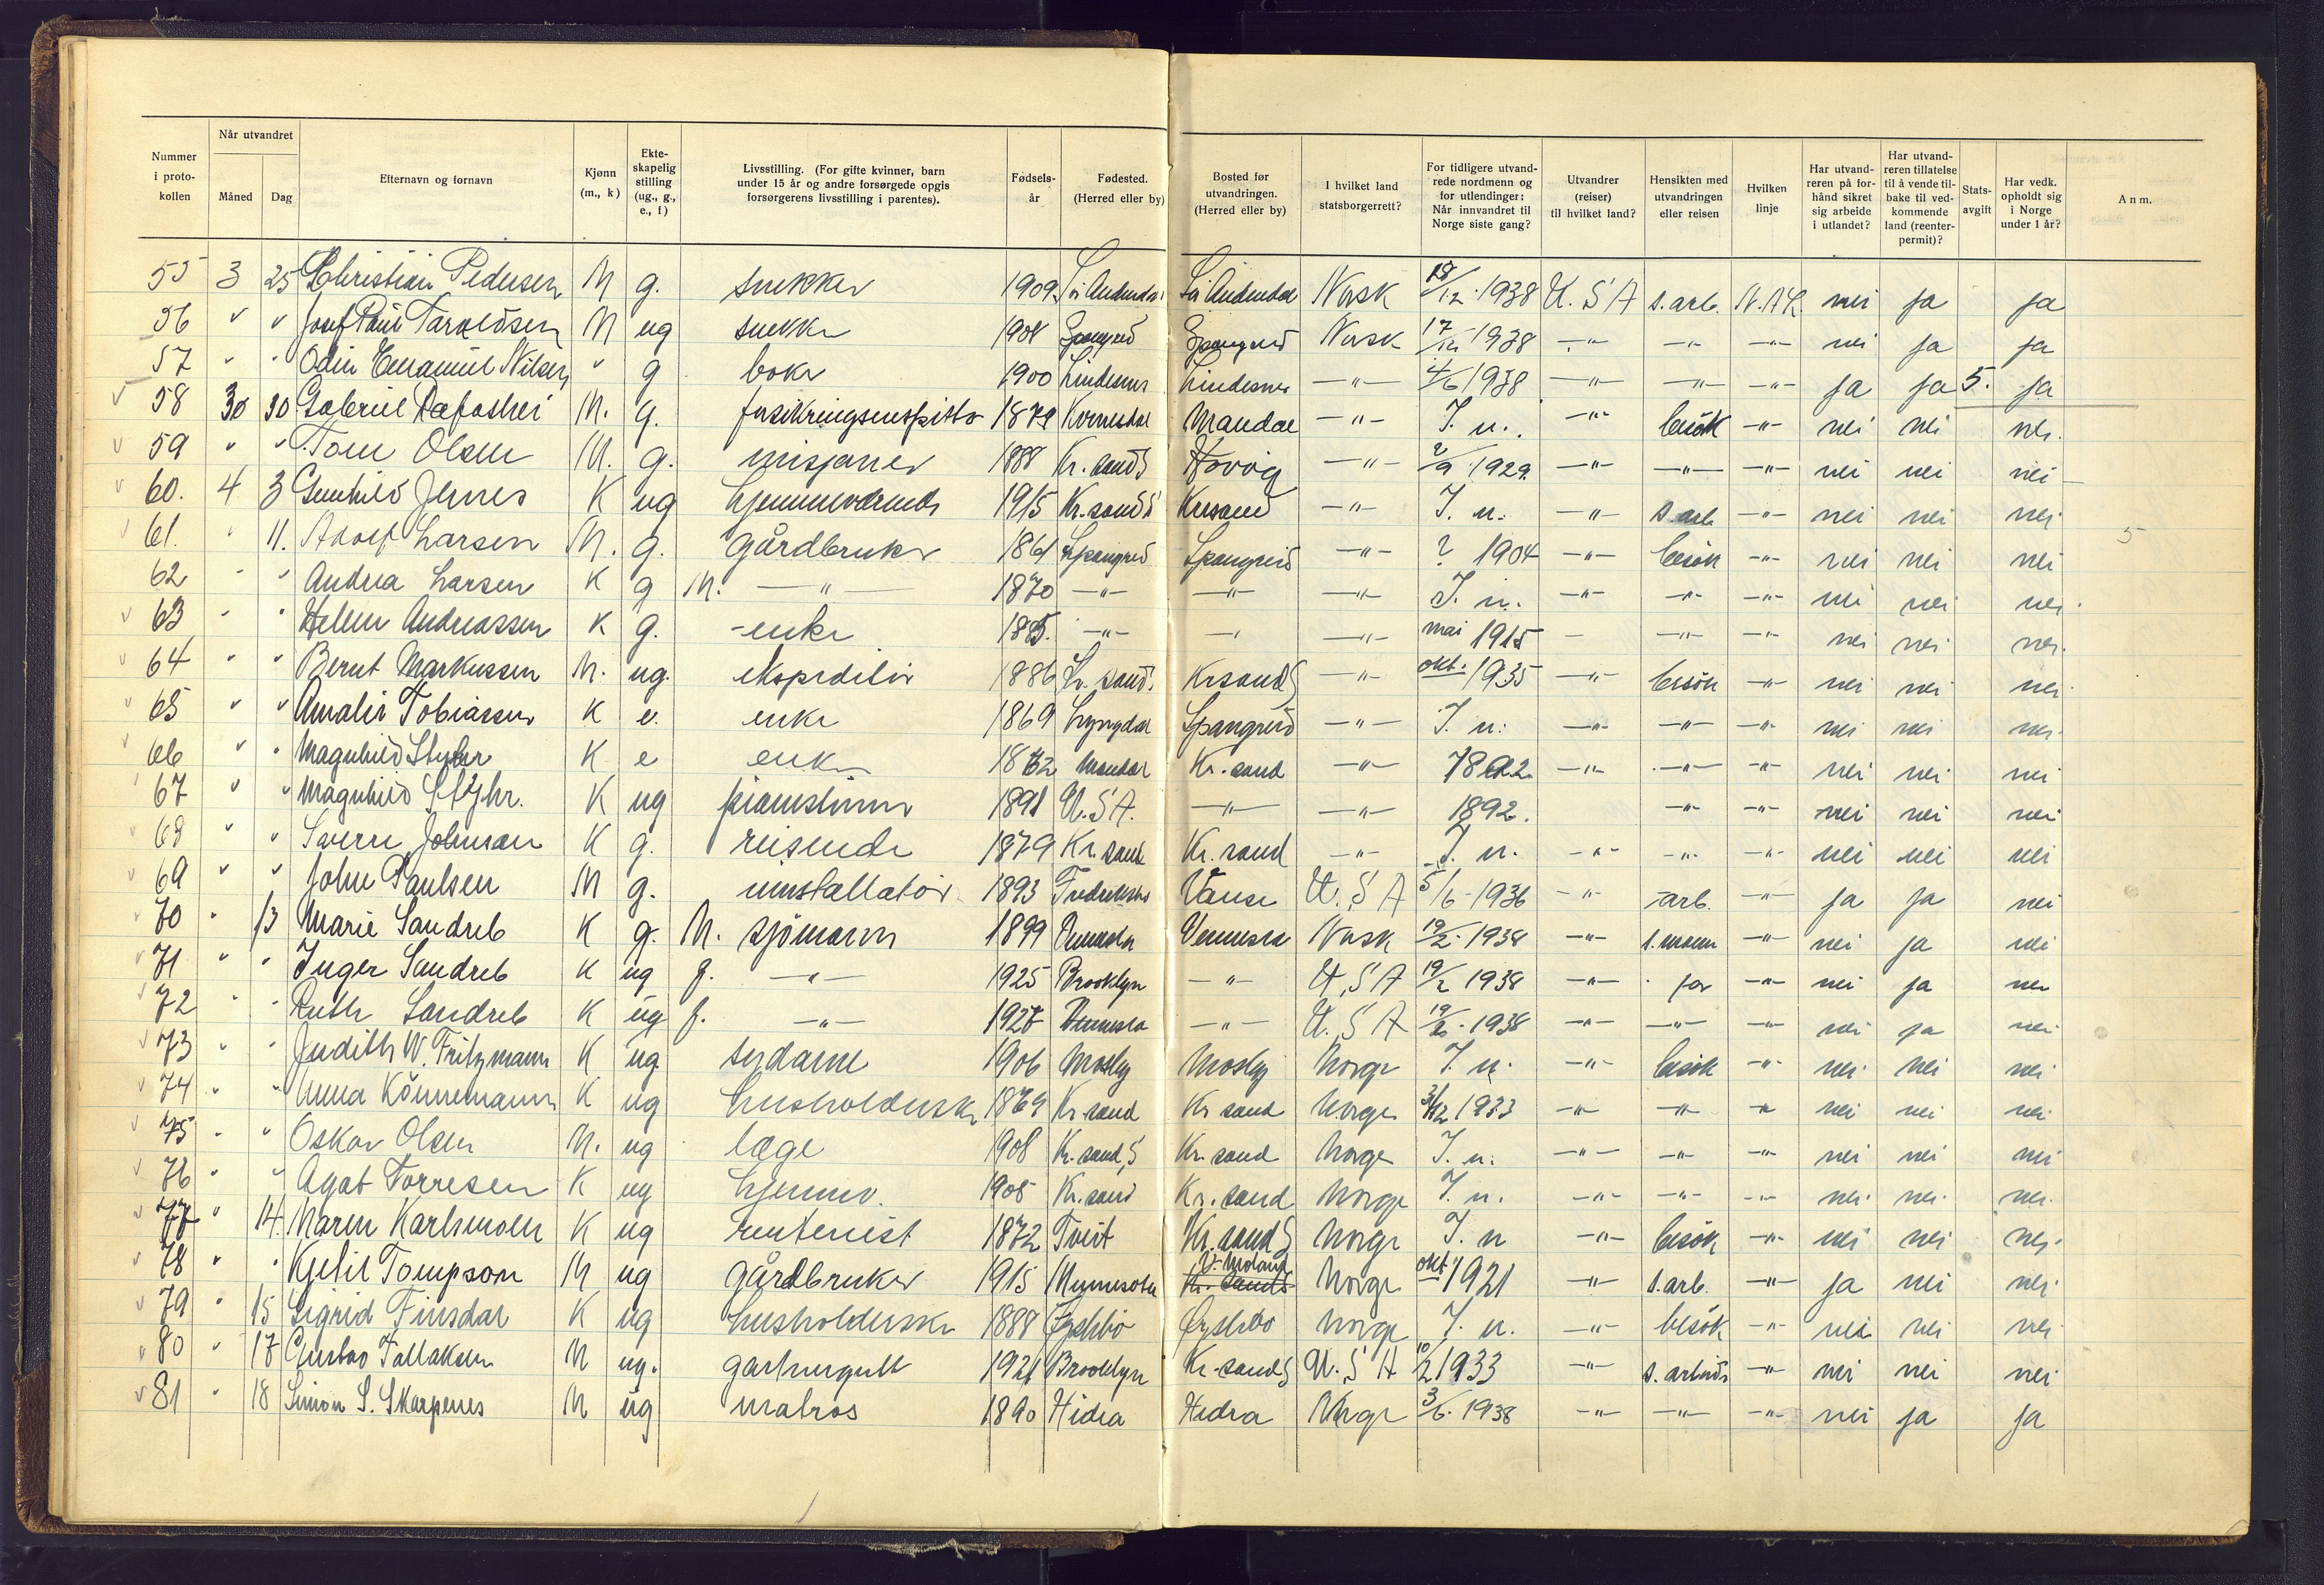 Nummer i protokollen | Når utvandret Måned | Dag | Efternavn og fornavn | Kjønn (m., k) | Ekteskapelig stilling (ug., g., e., f) | Livsstilling. (For gifte kvinner, barn under 15 år og andre forsørgede opgis forsørgerens livsstilling i parentes). | Fødselsår | Fødested. (Herred eller by) | Bosted før utvandringen. (Herred eller by) | I hvilket land statsborgerrett? | For tidligere utvandrede nordmenn og for utlendinger: Når innvandret til Norge siste gang? | Utvandrer (reiser) til hvilket land? | Hensikten med utvandringen eller reisen | Hvilken linje | Har utvandreren på forhånd sikret sig arbeide i utlandet? | Har utvandreren tillatelse til å vende tilbake til vedkommende land (reenterpermit)? | Statsavgift | Har vedk. opholdt sig i Norge under 1 år? | Anm.
55 3 25 Christian Pedersen M g. snekker 1909 Sør Audnedal Norsk 18/12 1938 U.S A s.arb. N.A.L. nei ja ja
56 " " Josef Paul Taraldsen M ug snekker 1908 Spangereid Spangereid Norsk 17/12 1938 -"- -"- -"- nei ja ja
57 " " Odin Emanuel Nilsen " g 1900 Lindesnes Lindesnes -"- 4/6 1938 -"- -"- -"- ja ja 5. ja
58 30 30 Gabriel M. g. 1879 Kvinesdal Mandal -"- I. n. -"- besök -"- nei nei nei.
59 " " Tom Olsen M. g. misjonær 1888 Kr.sand S -"- 2/9 1929 -"- -"- -"- nei nei nei
60. 4 3 Gunhild Jernes K ug hjemmeværende 1915 Kr.sand S Krsand -"- I. n. -"- s.arb -"- nei nei nei
61. " 11. Adolf Larsen M. g. gårdbruker 1861 Spangereid Spangereid -"- ? 1904 -"- besök -"- nei nei nei 5
62 " " Andrea Larsen K g M. -"- 1870 -"- -"- -"- I. n. -"- -"- -"- nei nei nei
63 " " Helene Andreassen K g. enke -"- -"- mai 1915 - -"- -"- nei nei nei.
64 " " Bernt Markussen M. ug. ekspeditør 1886 Kr. sand. Krsand S -"- okt. 1935 -"- besök -"- nei nei nei
65 " " Amalie Tobiassen K e. enke 1869 Lyngdal Spangereid -"- I. n. -"- -"- -"- nei nei nei
66 " " Magnhild Styhr K e enke Mandal Kr. sand -"- 1892 -"- -"- -"- nei nei nei
67 " " Magnhild Styhr. K ug pianistinne 1891 U.S A. -"- -"- 1892. -"- -"- nei nei nei
68 " " Sverre Johnsen K g. reisende 1879 Kr. sand Kr. sand -"- I. n. -"- -"- -"- nei nei nei
69 " " John Paulsen M g. installatør 1893 Vanse U. S A 5/6 - 1936 -"- arb. -"- ja ja nei
70 " 13 Marie Sandreb K g. M. sjömann 1899 Vennesla Vennesla Norsk 19/2 1938 -"- s.mann -"- nei ja nei
71 " " Inger Sandreb K ug f. -"- 1925 Brooklyn -"- U.S A 19/2 1938 -"- far -"- nei ja nei
72 " " Ruth Sandreb K ug f. -"- 1927 Vennesla -"- U. S A 19/2 1938 -"- -"- -"- nei ja nei
73 " " Judith W. Fritzmann K ug. sydame 1906 Mosby Mosby Norge I. n. -"- besök -"- nei nei nei
74 " " Anna Könnemann K ug husholderske 1869 Kr.sand Kr sand Norge 1933 -"- -"- -"- nei nei nei
75 " " Oskar Olsen M. ug læge 1908 Kr.sand S Kr. sand Norge I. n. -"- -"- -"- nei nei nei
76 " " Agot Torresen K ug hjemmev. 1905 Kr.sand Kr. sand Norge I. n. -"- -"- -"- nei nei nei
77 " 14. Maren Karlsmoen K ug rentenist 1872 Tveit Kr.sand S Norge I. n -"- besök -"- nei nei nei
78 " " Kjetil Tompson M ug gårdbruker 1915 Minnesota Kr. sand S V. Moland Norge okt 1921 -"- s.arb. -"- ja nei nei
79 " 15 Sigrid Finsdal K ug husholderske 1888 Øyslebø Øyslebø Norge I. n. -"- besök -"- nei nei nei
80 " 17 Gustav Tallaksen M ug. gartnergutt 1921 Brooklyn Kr. sand S U. S A 10/2 1933 -"- s. arbeide -"- nei nei nei
81 " 18 Simon S. Skarpenes M ug matros 1890 Hidra Hidra Norge 3/6. 1938 -"- -"- -"- nei ja ja